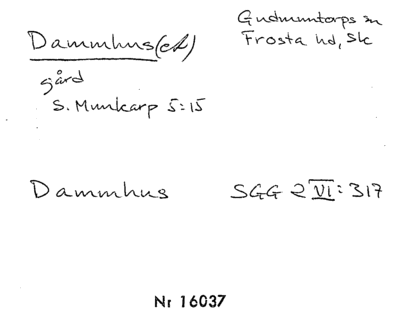 Dammhus(et)
Gudmuntorps sn
Frosta hd, Sk
gård
S. Munkarp 5:15
Dammhus SGG 2 VI: 317
Nr 16037